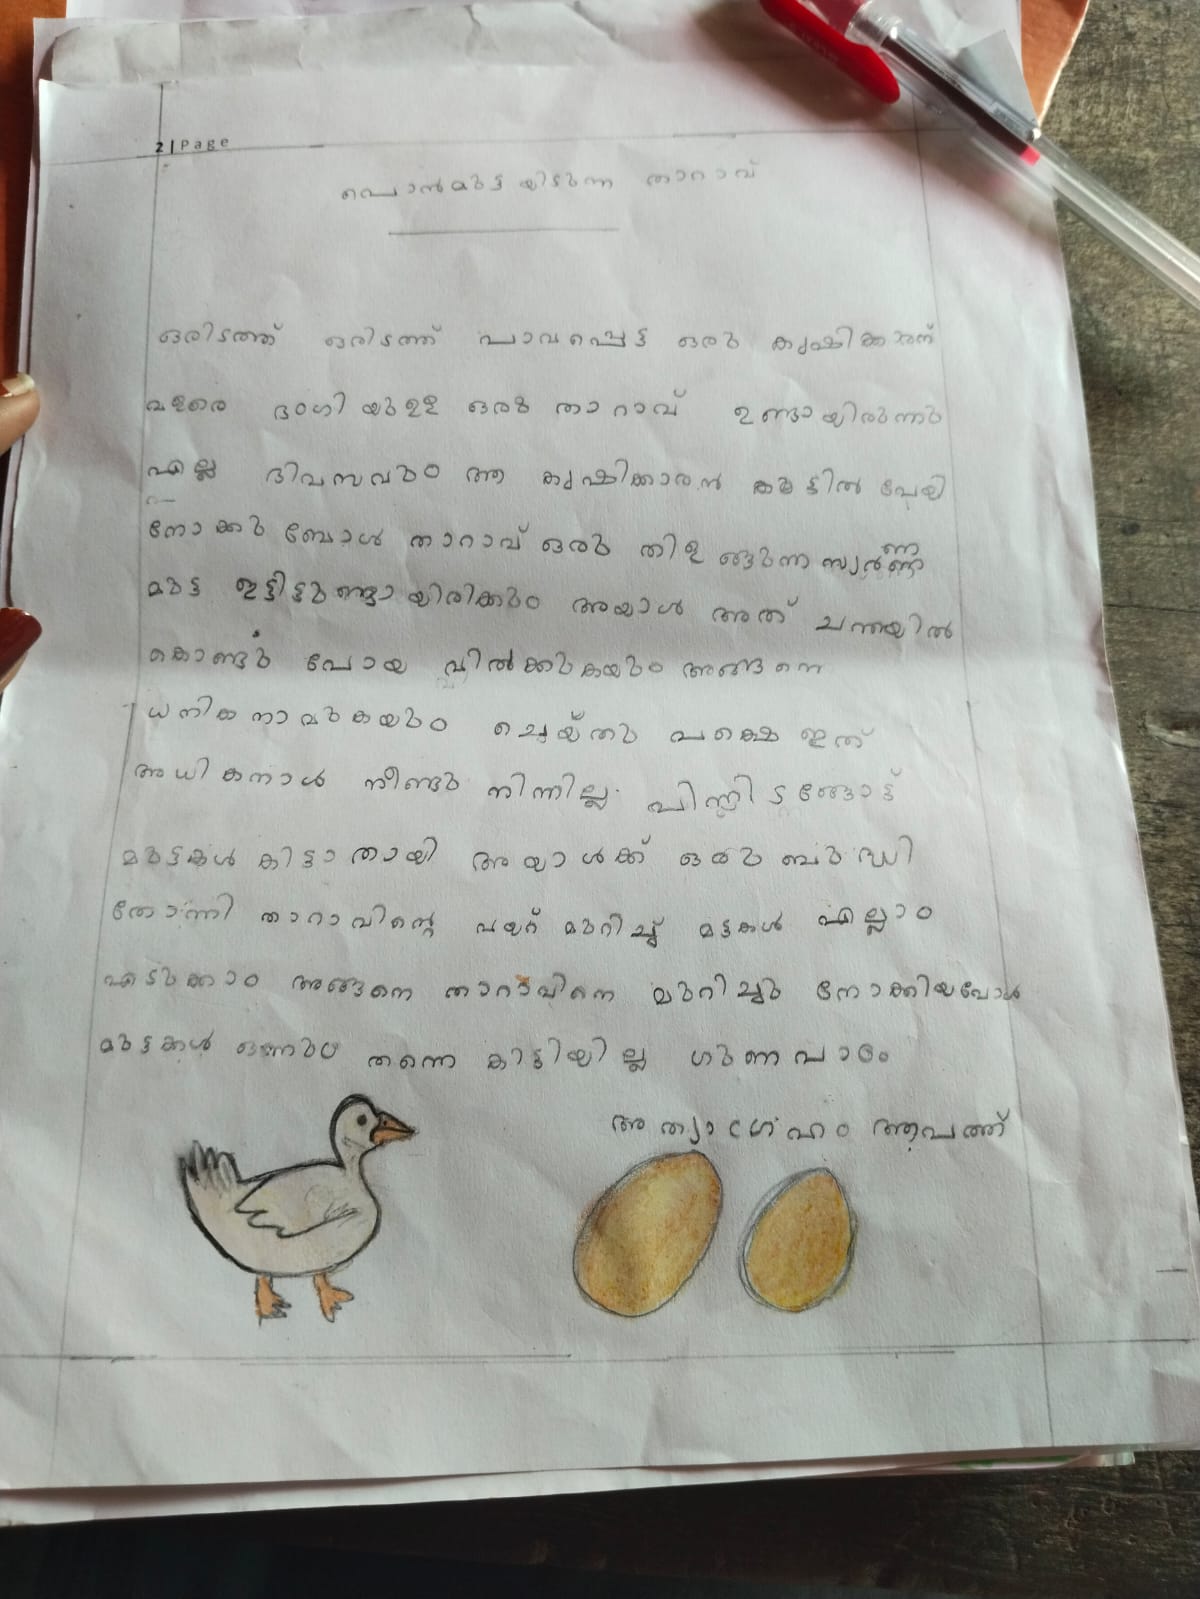 2 | Page
പൊൻമുട്ടയിടുന്ന താറാവ്
ഒരിടത്ത് ഒരിടത്ത് പാവപ്പെട്ട ഒരു കൃഷിക്കാരന്
വളരെ ഭംഗിയുള്ള ഒരു താറാവ് ഉണ്ടായിരുന്നു
എല്ല ദിവസവും ആ കൃഷിക്കാരൻ കൂട്ടിൽ പോയി
നോക്കുബോൾ താറാവ് ഒരു തിളങ്ങുന്ന സ്വർണ്ണ
മുട്ട ഇട്ടിട്ടുണ്ടായിരിക്കും അയാൾ അത് ചന്തയിൽ
കൊണ്ടു പോയ വിൽക്കുകയും അങ്ങനെ
ധനികനാവുകയും ചെയ്തു പക്ഷെ ഇത്
അധികനാൾ നീണ്ടു നിന്നില്ല പിന്നിടങ്ങോട്ട്
മുട്ടകൾ കിട്ടാതായി അയാൾക്ക് ഒരു ബുദ്ധി
തോന്നി താറാവിന്റെ വയറ് മുറിച്ച് മുട്ടകൾ എല്ലാം
എടുക്കാം അങ്ങനെ താറാവിനെ മുറിച്ചു നോക്കിയപോൾ
മുട്ടകൾ ഒന്നും തന്നെ കിട്ടിയില്ല ഗുണപാഠം
അത്യാഗ്രഹം ആപത്ത്